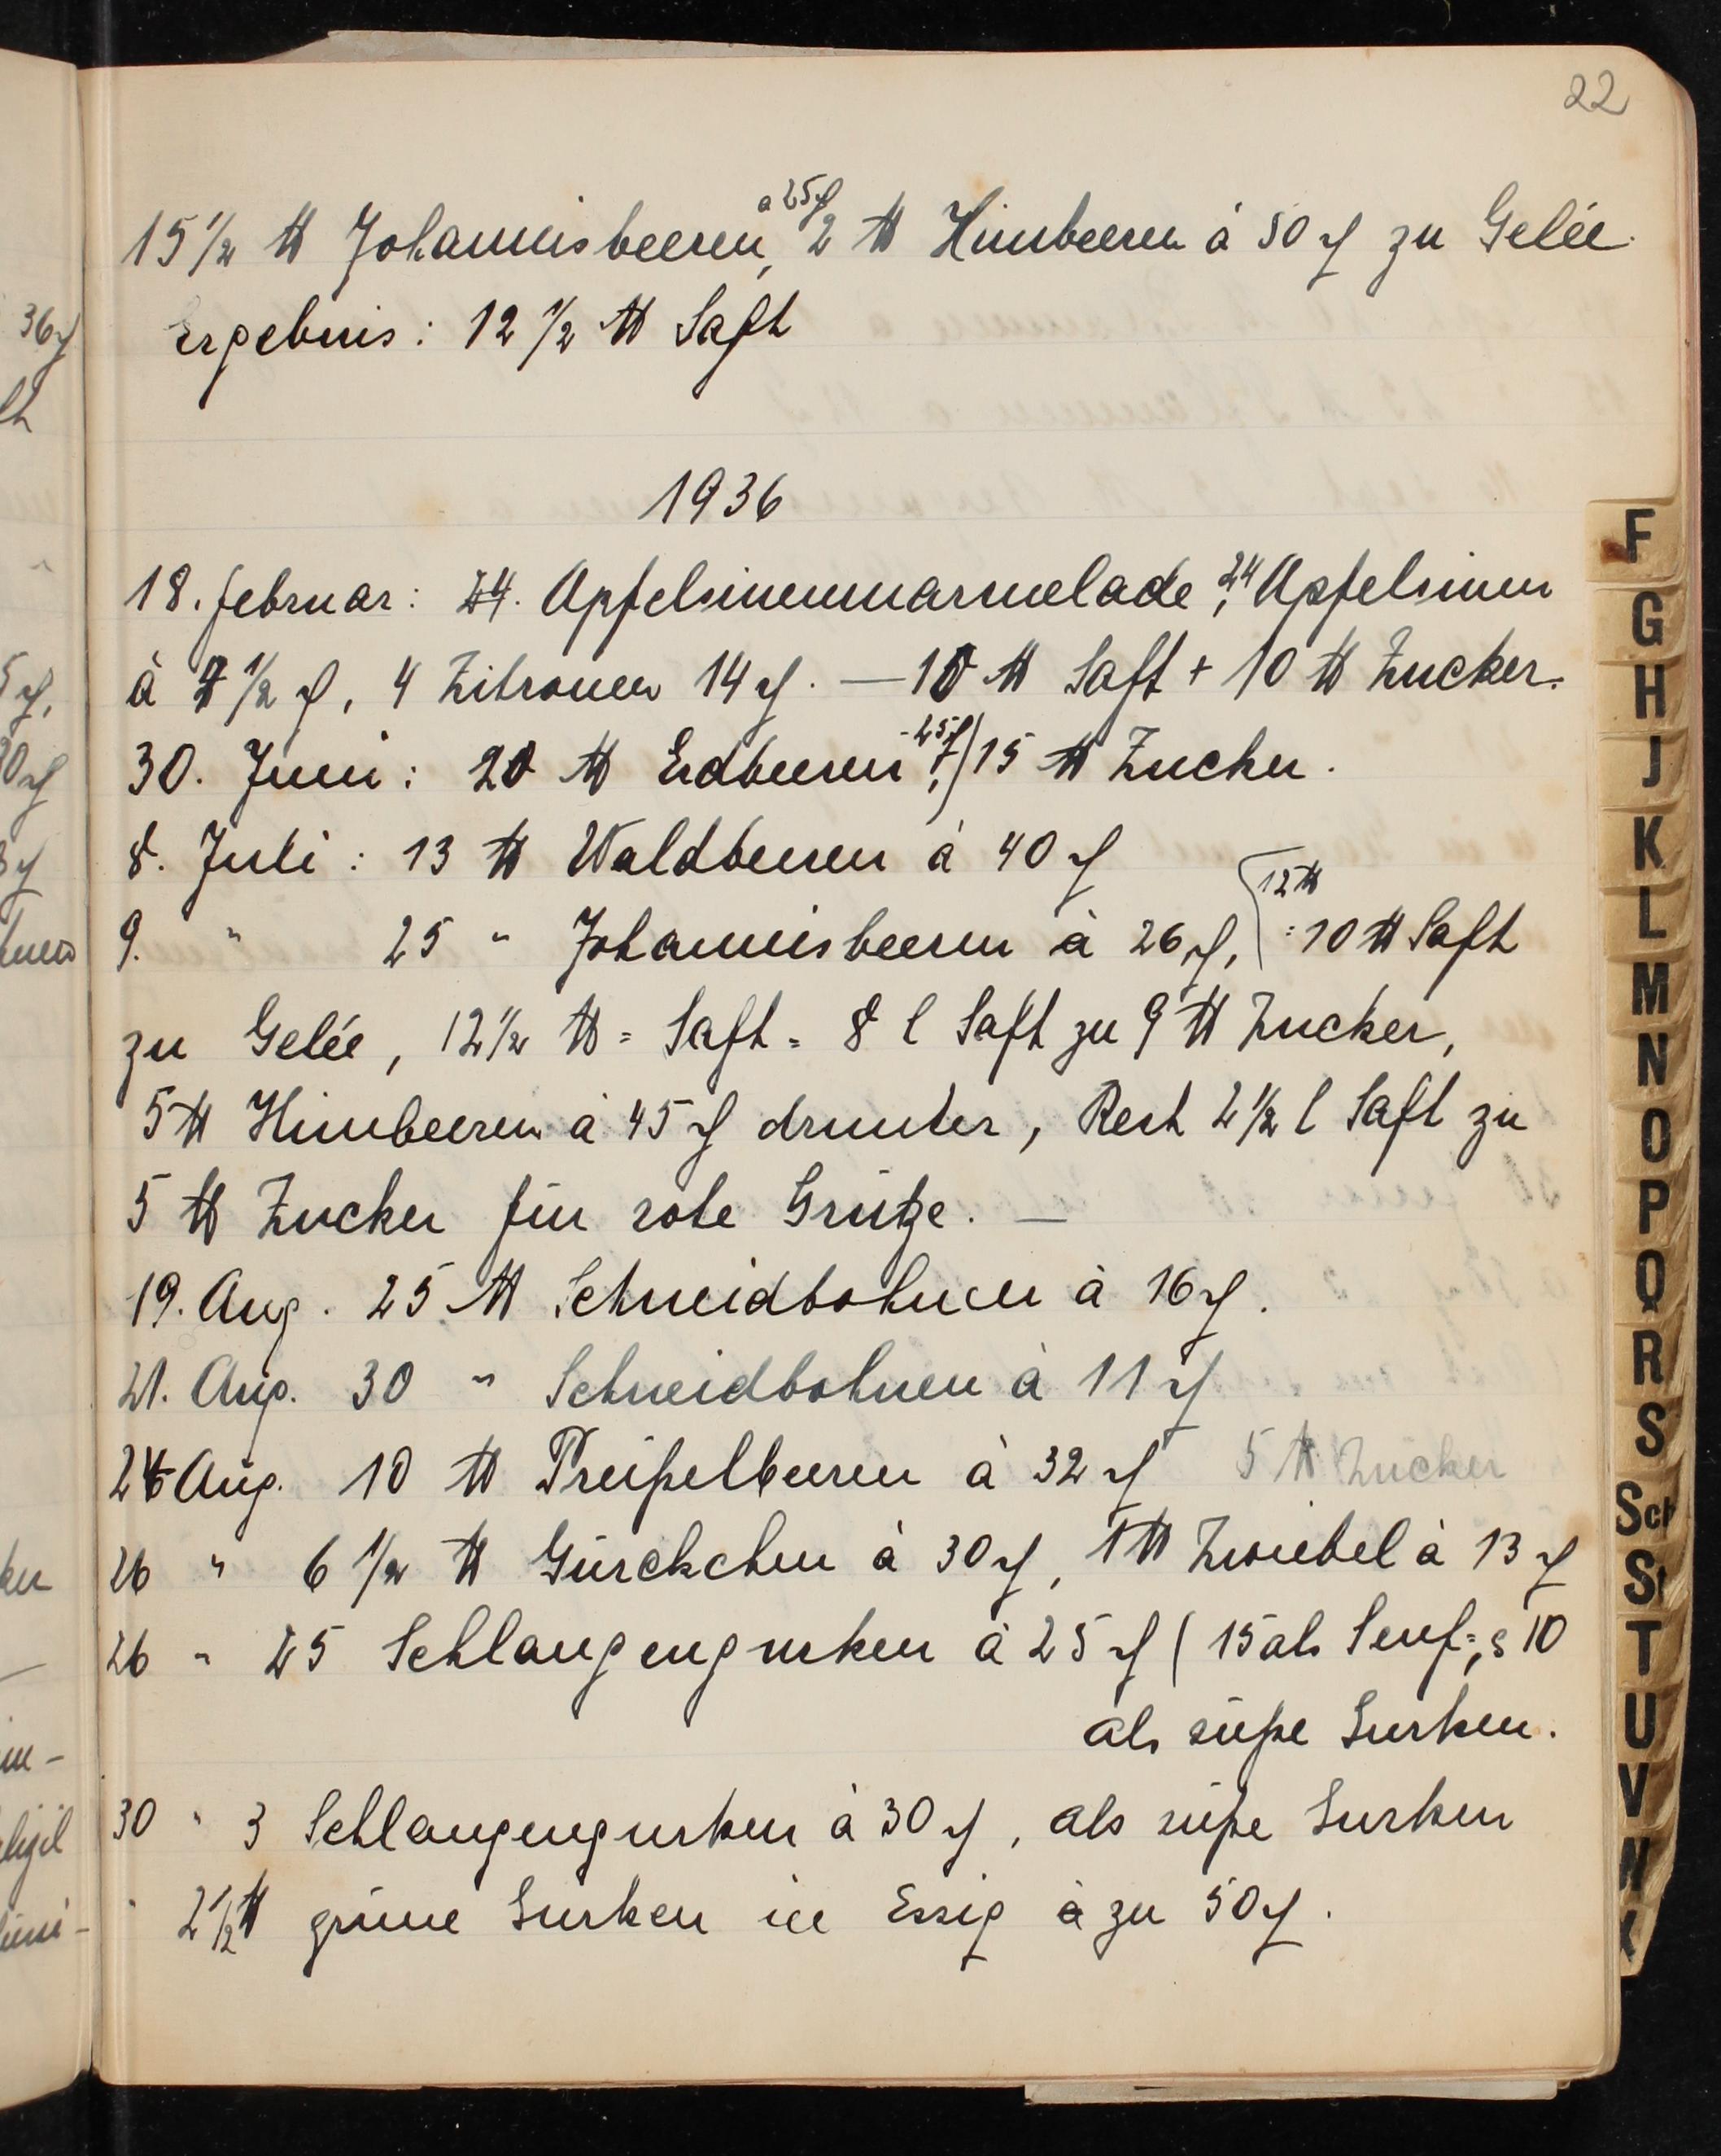 22
15 1/2 ℔ Johannisbeeren, à 25 ₰ 2 ℔ Himbeeren à 50 ₰ zu Gelée.
Ergebnis: 12 1/2 ℔ Saft
1936
18. Februar: 24. Apfelsinenmarmelade, 24 Apfelsinen
à 4 1/2 ₰, 4 Zitronen 14 ₰. — 10 ℔ Saft + 10 ℔ Zucker.
30. Juni: 20 ℔ Erdbeeren, 15 ℔ Zucker.
8. Juli: 13 ℔ Waldbeeren à 40 ₰
12 ℔
9. " 25 " Johannisbeeren à 26 ₰, = 10 ℔ Saft
zu Gelée, 12 1/2 ℔ = Saft = 8 l Saft zu 9 ℔ Zucker,
5 ℔ Himbeeren à 45 ₰ drunter, Rest 2 1/2 l Saft zu
5 ℔ Zucker für rote Grütze. —
19. Aug. 25 ℔ Schneidbohnen à 16 ₰.
21. Aug. 30 " Schneidbohnen à 11 ₰
Aug. 10 ℔ Preißelbeeren à 32 ₰ 5 ℔ Zucker
26 " 6 1/2 ℔ Gürckchen à 30 ₰, 1 ℔ Zwiebel à 13 ₰
26 " 25 Schlangengurken à 25 ₰ (15 als Senf=, 10
als süße Gurken.
30 " 3 Schlangengurken à 30 ₰, als süße Gurken
" 2 1/2 ℔ grüne Gurken in Essig à zu 50 ₰.
F
G
H
J
K
L
M
N
O
P
Q
R
S
Sch
St
T
U
V